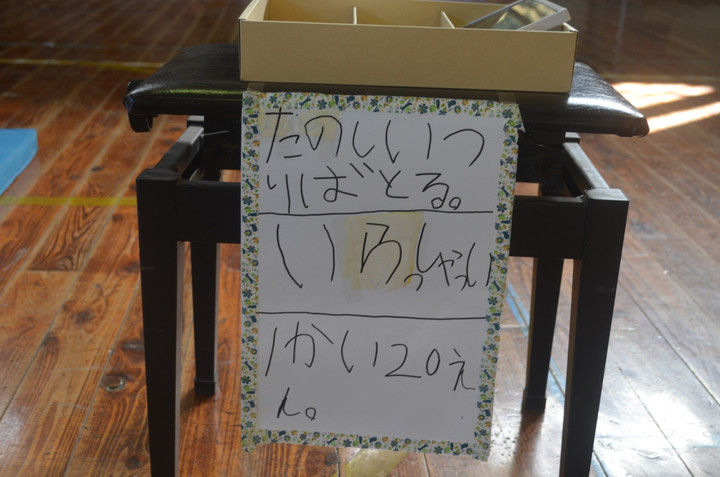 たのしいつ
りばとる。
いろっしゃい
1かい20え
ん。